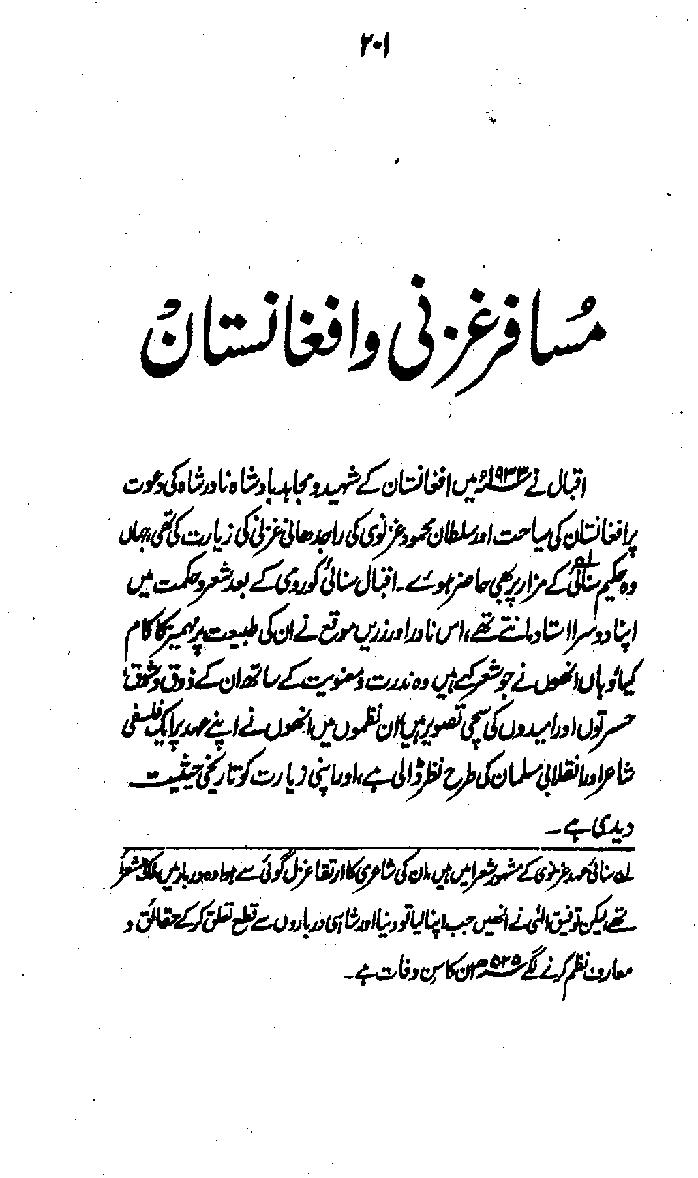 ۲۰۱
مُسافر غزنی و افغانستان
اقبال نے ۱۹۳۳ء میں افغانستان کے شہید و مجاہد بادشاہ نادر شاہ کی دعوت
پر افغانستان کی سیاحت اور سلطان محمود غزنوی کی راجدھانی غزنی کی زیارت کی تھی، جہاں
وہ حکیم سنائیؒ کے مزار پر بھی حاضر ہوئے۔ اقبال سنائی کو رومی کے بعد شعر و حکمت میں
اپنا دوسرا استاد مانتے تھے، اس نادر اور زریں موقع نے ان کی طبیعت پر مہمیز کا کام
کیا، وہاں انھوں نے جو شعر کہے ہیں وہ ندرت و معنویت کے ساتھ ان کے ذوق و شوق،
حسرتوں اور امیدوں کی سچی تصویر ہیں، ان نظموں میں انھوں نے اپنے عہد پر ایک فلسفی
شاعر اور انقلابی مسلمان کی طرح نظر ڈالی ہے، اور اپنی زیارت کو تاریخی حیثیت
دیدی ہے۔
لہ سنائی عہد غزنوی کے مشہور شعرا میں ہیں، ان کی شاعری کا ارتقا غزل گوئی سے ہوا، وہ دربار میں ملک الشعرا
تھے، لیکن توفیق الٰہی نے انھیں جب اپنا لیا تو دنیا اور شاہی درباروں سے قطع تعلق کر کے حقائق و
معارف نظم کرنے لگے ۵۲۵ھ ان کا سن وفات ہے۔